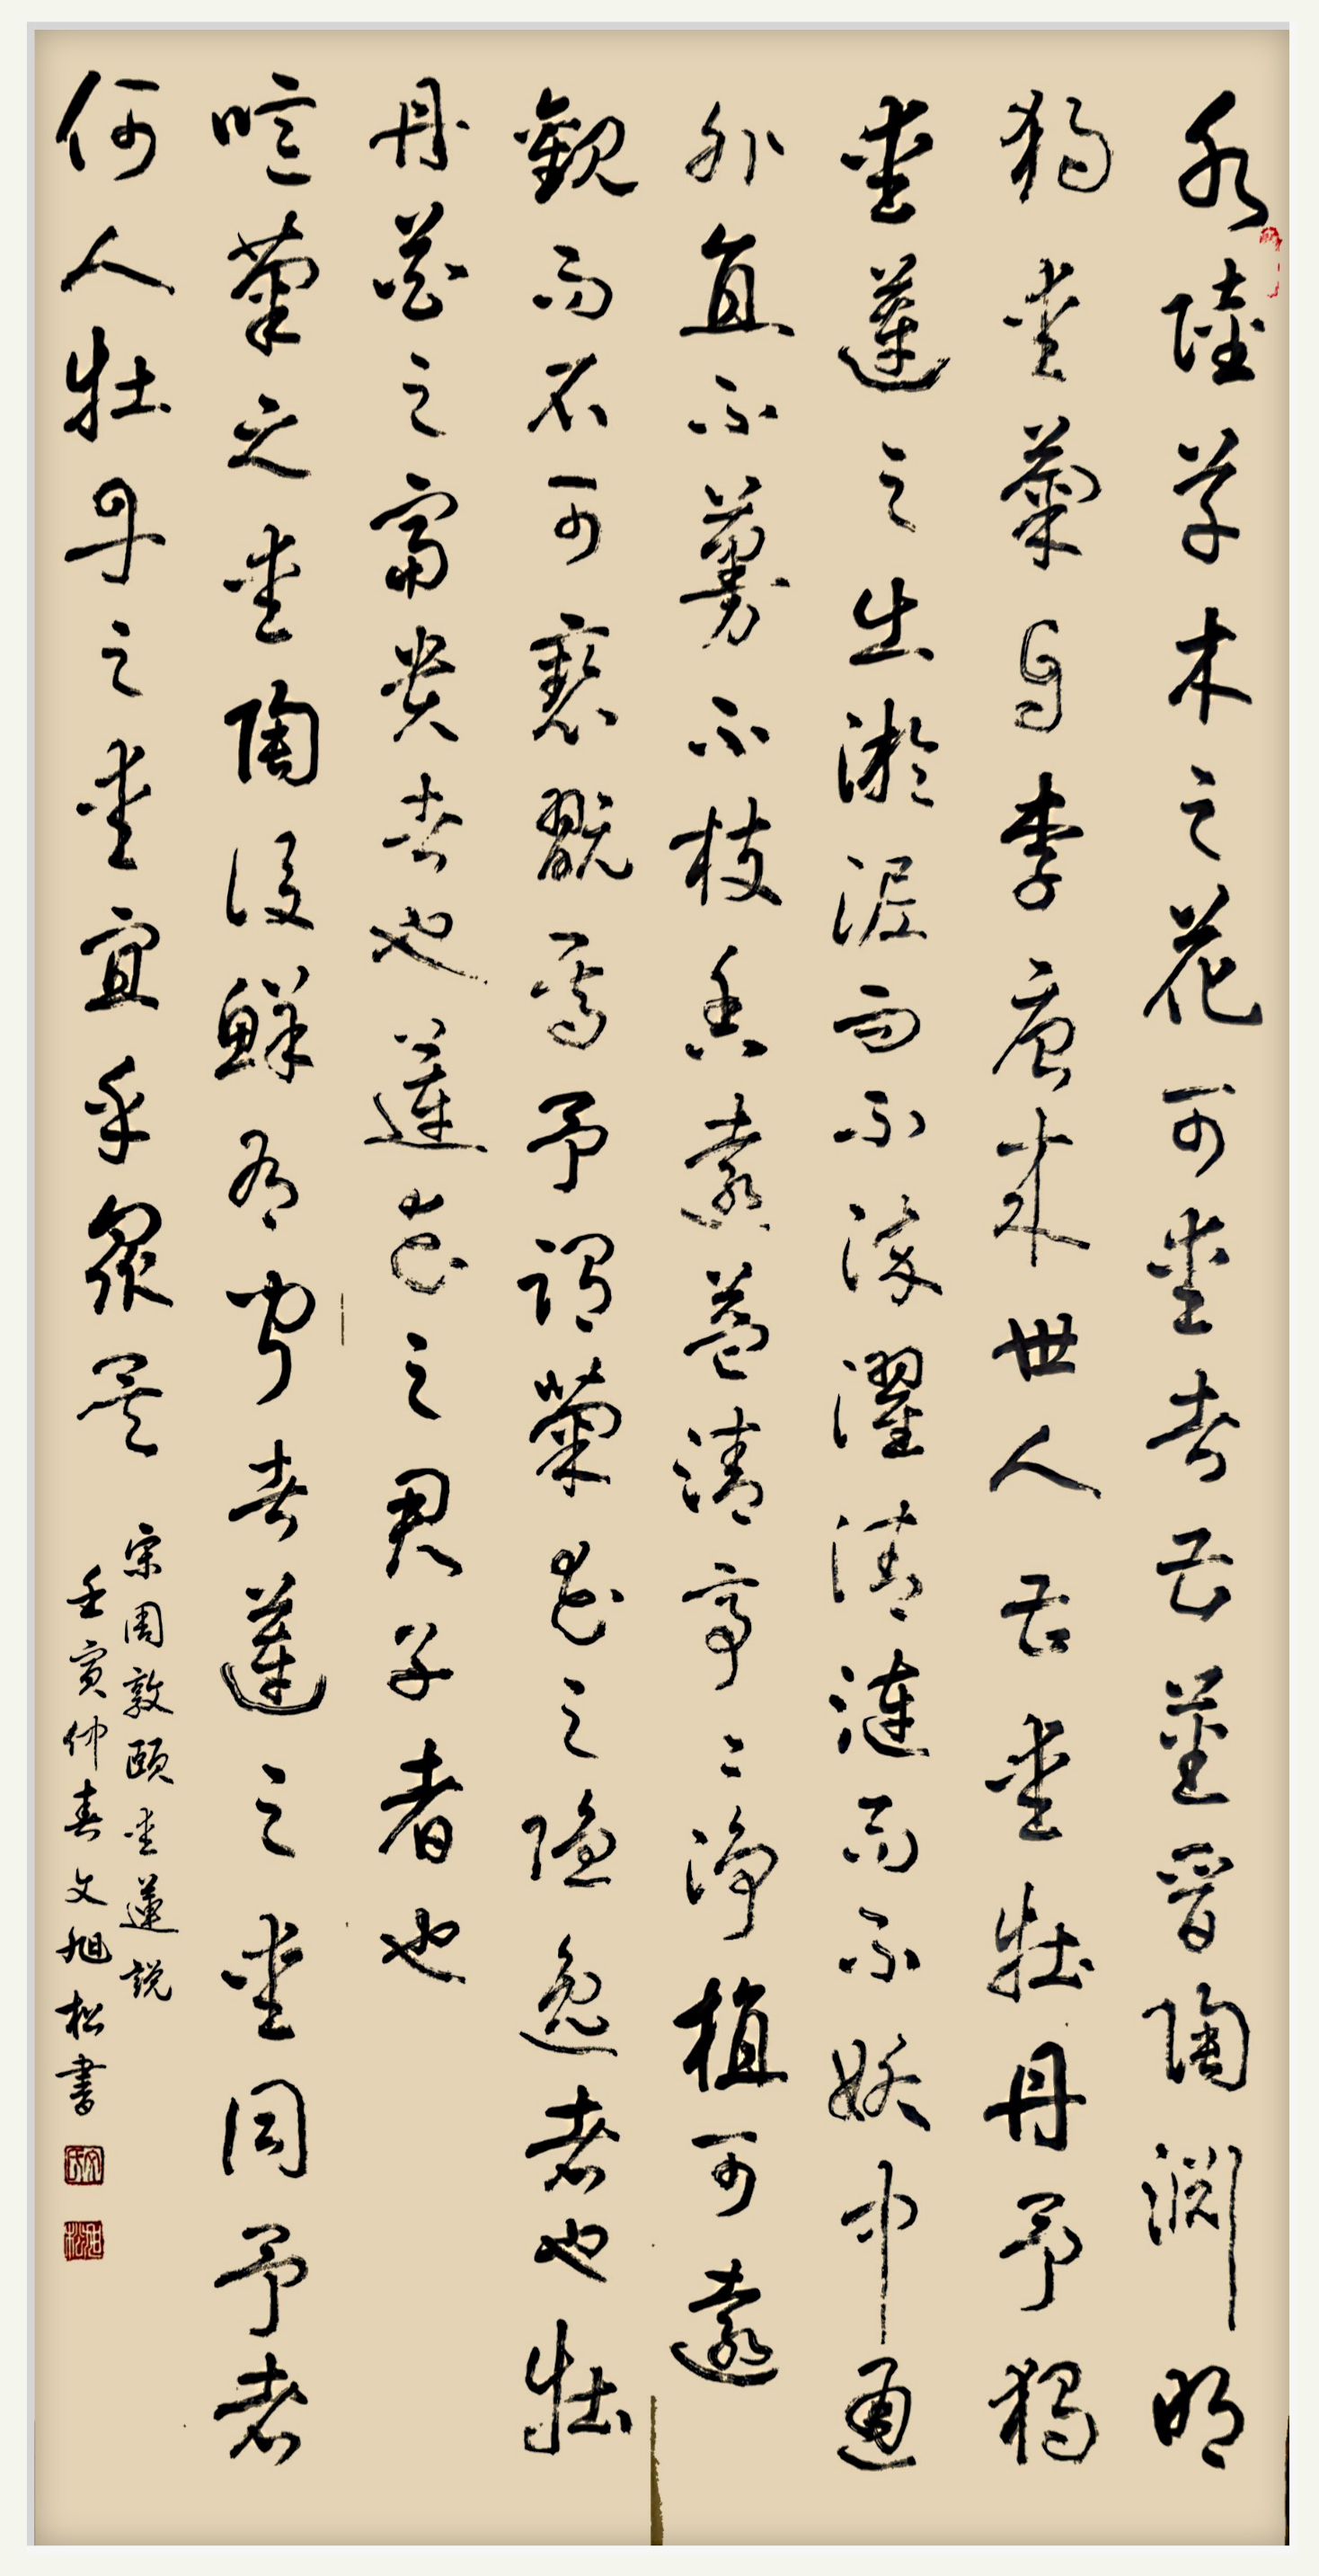 水陸草木之花可愛者甚蕃晉陶淵明
獨愛菊自李唐來世人甚愛牡丹予獨
愛蓮之出淤泥而不染濯清漣而不妖中通
外直不蔓不枝香遠益清亭〻淨植可遠
觀而不可褻翫焉予謂菊花之隱逸者也牡
丹花之富貴者也蓮花之君子者也
噫菊之愛陶後鮮有聞者蓮之愛同予者
何人牡丹之愛宜乎衆矣
宋周敦頤愛蓮說
壬寅仲春文旭松書
文氏
旭松